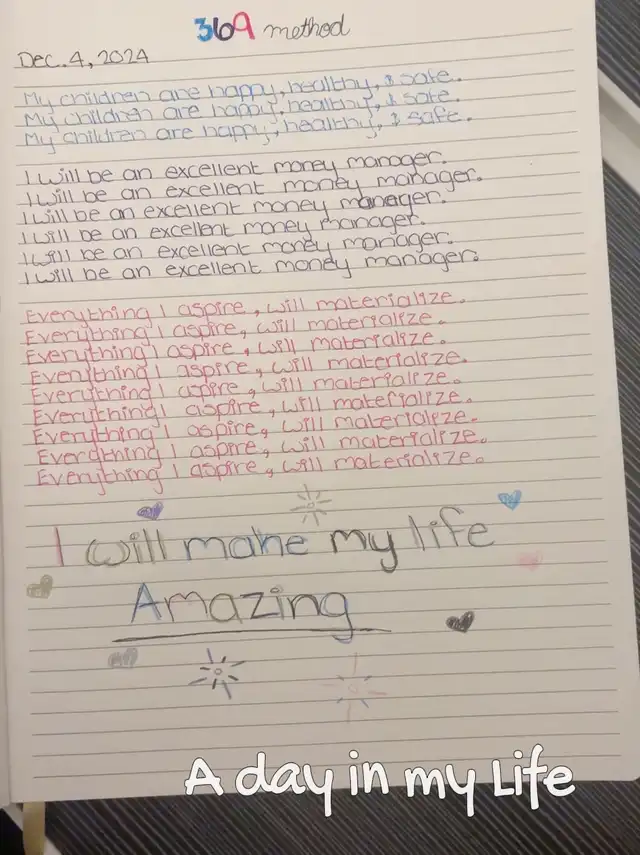 369 method
Dec. 4, 2024
My children are happy, healthy, & safe.
My children are happy, healthy, & safe.
My children are happy, healthy, & safe.
I will be an excellent money manager.
I will be an excellent money manager.
I will be an excellent money manager.
I will be an excellent money manager.
I will be an excellent money manager.
I will be an excellent money manager.
Everything I aspire, will materialize.
Everything I aspire, will materialize.
Everything I aspire, will materialize.
Everything I aspire, will materialize.
Everything I aspire, will materialize.
Everything I aspire, will materialize.
Everything I aspire, will materialize.
Everything I aspire, will materialize.
Everything I aspire, will materialize.
I will make my life
Amazing
A day in my Life